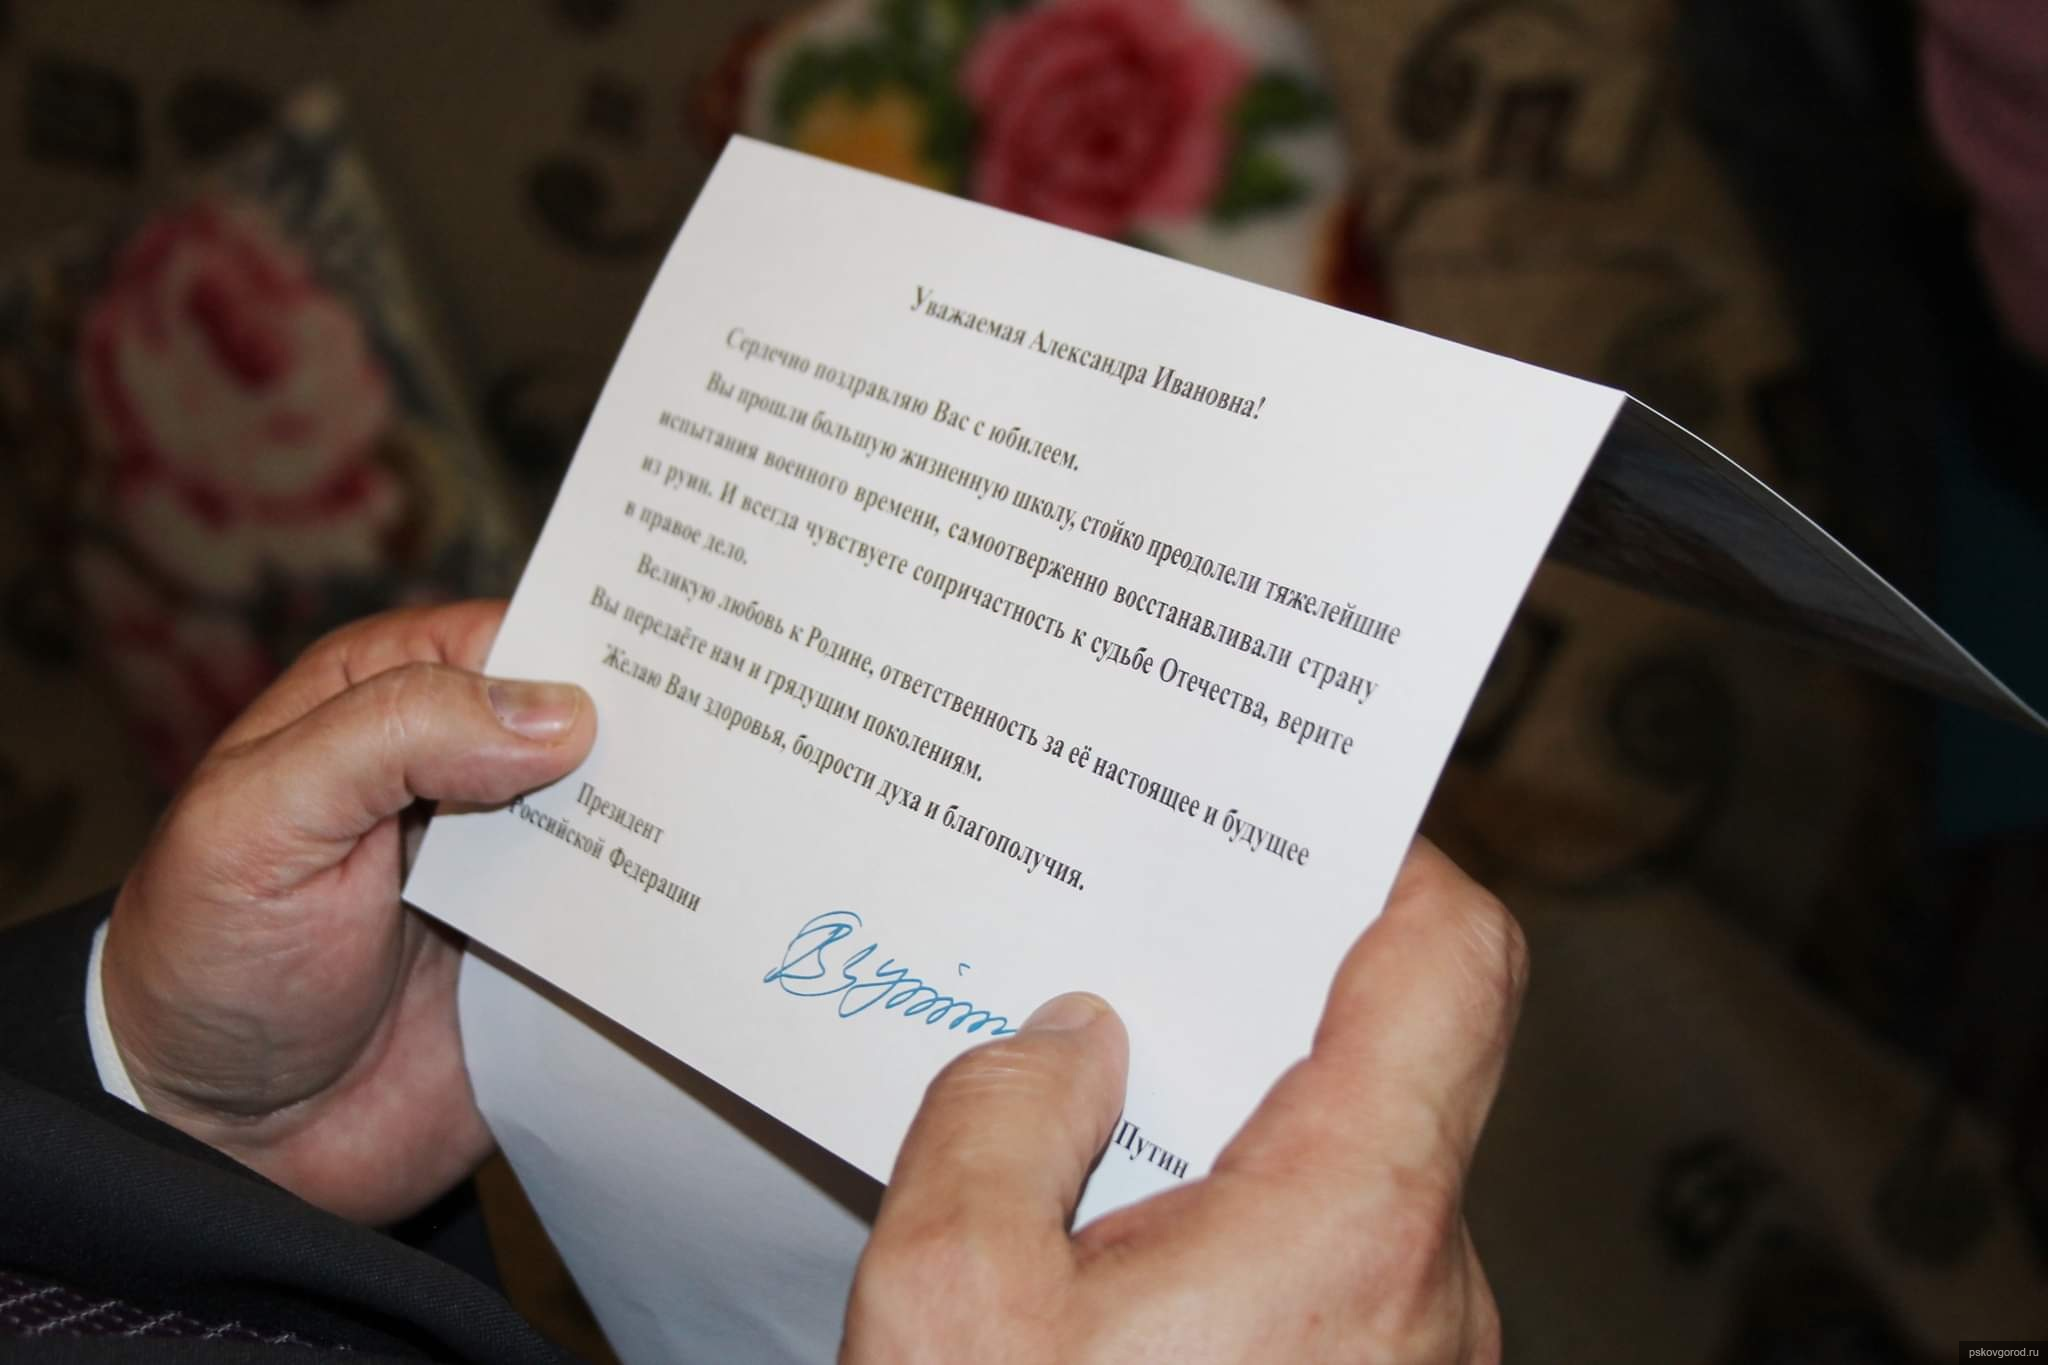 Уважаемая Александра Ивановна!
Сердечно поздравляю Вас с юбилеем.
Вы прошли большую жизненную школу, стойко преодолели тяжелейшие
испытания военного времени, самоотверженно восстанавливали страну
из руин. И всегда чувствуете сопричастность к судьбе Отечества, верите
в правое дело.
Великую любовь к Родине, ответственность за её настоящее и будущее
Вы передаёте нам и грядущим поколениям.
Желаю Вам здоровья, бодрости духа и благополучия.
Президент
Российской Федерации
Путин
pskovgorod.ru